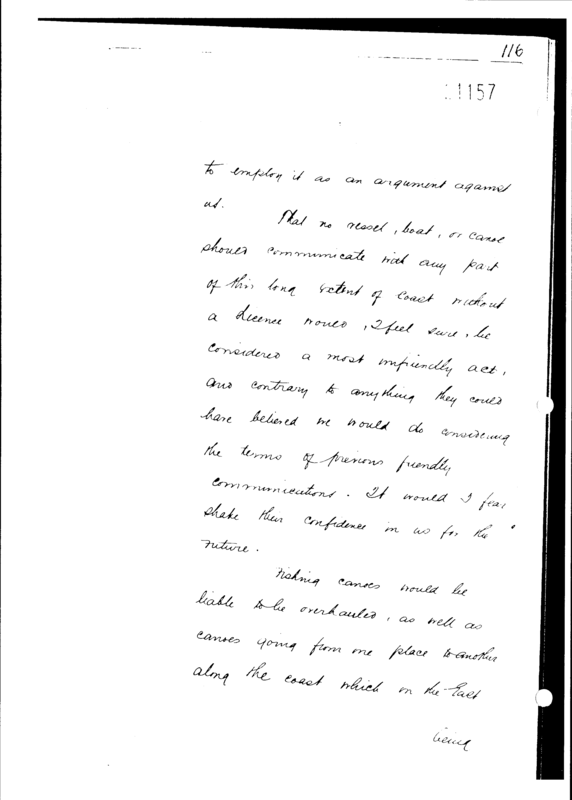 116
1157
to employ it as an argument against
us.
That no vessel, boat, or canoe
should communicate with any part
of this long extent of coast without
a Licence would, I feel sure, be
considered a most unfriendly act,
and contrary to anything they could
have believed we would do considering
the terms of previous friendly
communications. It would I fear
shake their confidence in us for the
future.
Fishing canoes would be
liable to be overhauled, as well as
canoes going from one place to another
along the coast which on the East
being